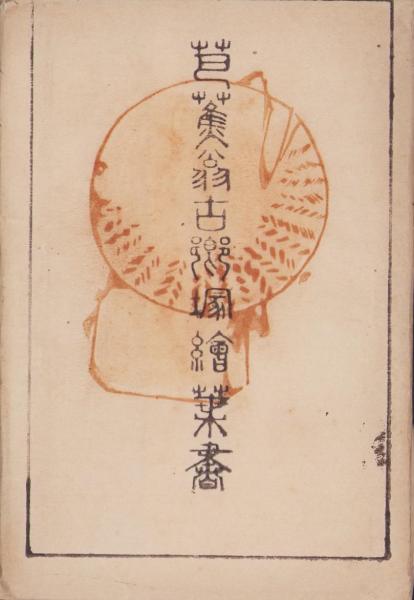 芭蕉翁古郷塚繪葉書